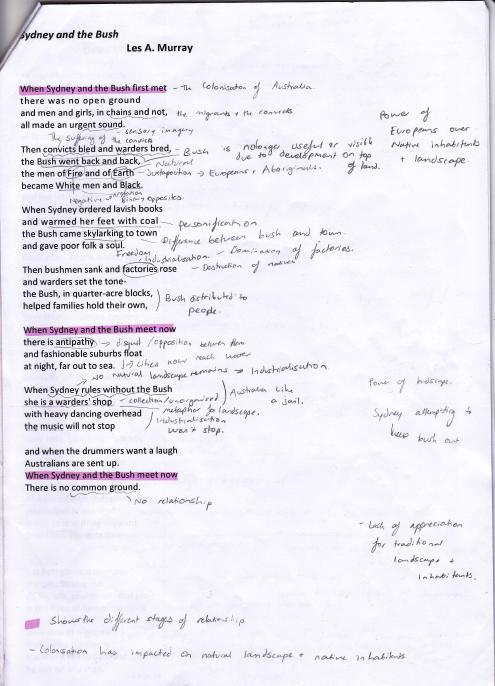 Sydney and the Bush
Les A. Murray
When Sydney and the Bush first met - The Colonisation of Australia.
there was no open ground
and men and girls, in chains and not, the migrants + the convicts.
all made an urgent sound. - sensory imagery
The suffering of the convicts
Then convicts bled and warders bred, - Bush is no longer useful or visible
the Bush went back and back, natural due to development on top
of land.
the men of Fire and of Earth - Juxtaposition → Europeans, Aboriginals.
became White men and Black.
Negative connotation Binary opposites.
Power of
Europeans over
Native inhabitants
+ landscape.
When Sydney ordered lavish books
and warmed her feet with coal - personification
the Bush came skylarking to town - Difference between bush and town.
and gave poor folk a soul.
Freedom
Industrialisation. - Domination of factories.
Then bushmen sank and factories rose - Destruction of nature
and warders set the tone-
the Bush, in quarter-acre blocks, Bush distributed to
helped families hold their own, people.
When Sydney and the Bush meet now
there is antipathy → disgust /opposition between them
and fashionable suburbs float
at night, far out to sea. → cities now reach water
→ No natural landscape remains → Industrialisation
When Sydney rules without the Bush Australia like
she is a warders' shop - collection/unorganised a jail.
with heavy dancing overhead metaphor for landscape.
the music will not stop Industrialisation
won't stop.
Power of landscape.
Sydney attempting to
keep bush out
and when the drummers want a laugh
Australians are sent up.
When Sydney and the Bush meet now
There is no common ground.
No relationship
- Lack of appreciation
for traditional
landscape +
inhabitants.
Shows the different stages of relationship
- Colonisation has impacted on natural landscape + native inhabitants